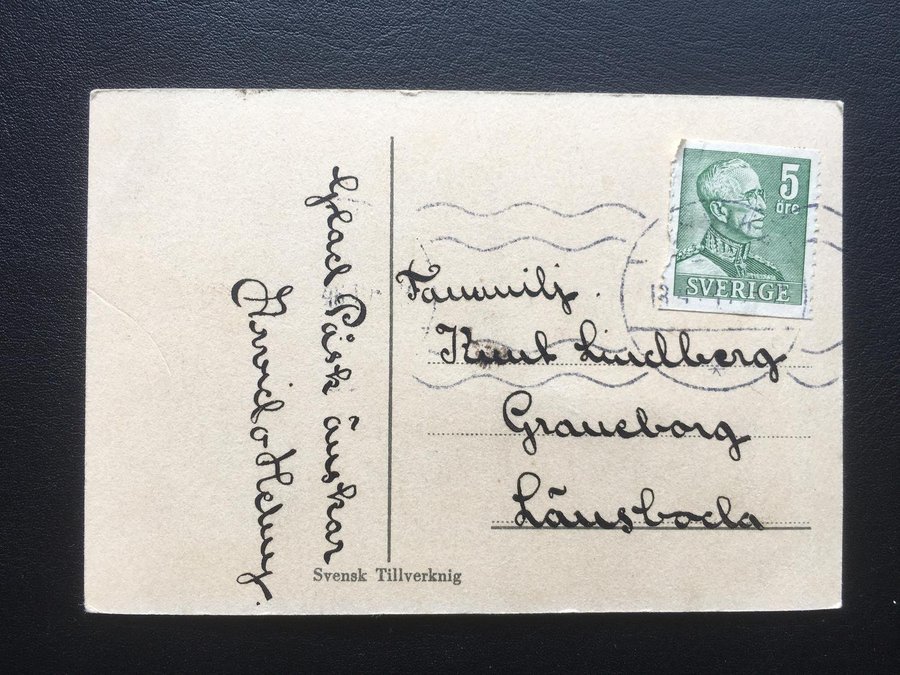 Glad Påsk önskar
Arvid o Helny.
Svensk Tillverknig
5
öre
SVERIGE
Fammilj.
Knut Lindberg
Graneborg
Lönsboda